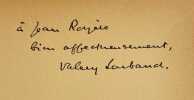 à Jean Royère
bien affectueusement,
Valery Larbaud.